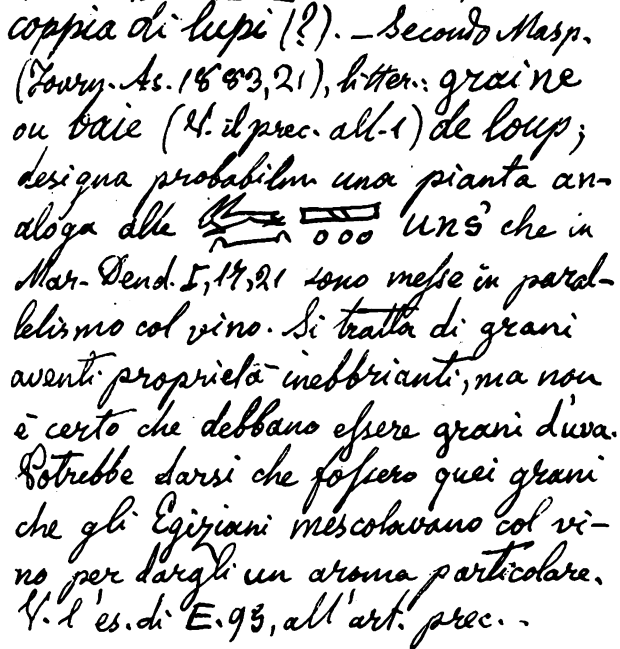 coppia di lupi (?). – Secondo Masp.
(Journ. As. 1883, 21), litter.: graine
ou baie (V. il prec. all-1) de loup;
designa probabilm una pianta an-
aloga alle UNŚ che in
Mar-Dend. I, 17, 21 sono messe in paral-
lelismo col vino. Si tratta di grani
aventi proprietà inebbrianti, ma non
è certo che debbano essere grani d'uva.
Potrebbe darsi che fossero quei grani
che gli Egiziani mescolavano col vi-
no per dargli un aroma particolare.
V. l'es. di E. 93, all'art. prec. -